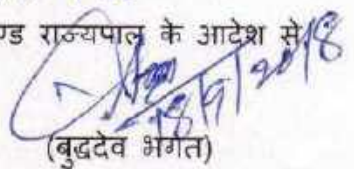 ण्ड राज्यपाल के आदेश से
18/9/2018
(बुद्धदेव भगत)